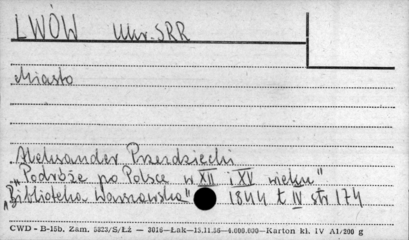 LWÓW Ukr. SRR
Miasto
Aleksander Przezdziecki
„Podróże po Polsce w XII i XV wieku"
„Biblioteka Warszawska" 1844 t IV str 174
CWD - B-15b. Zam. 5823/S/Łż — 3016—Łak—15.11.56—4.000.000—Karton kl. IV A1/200 g